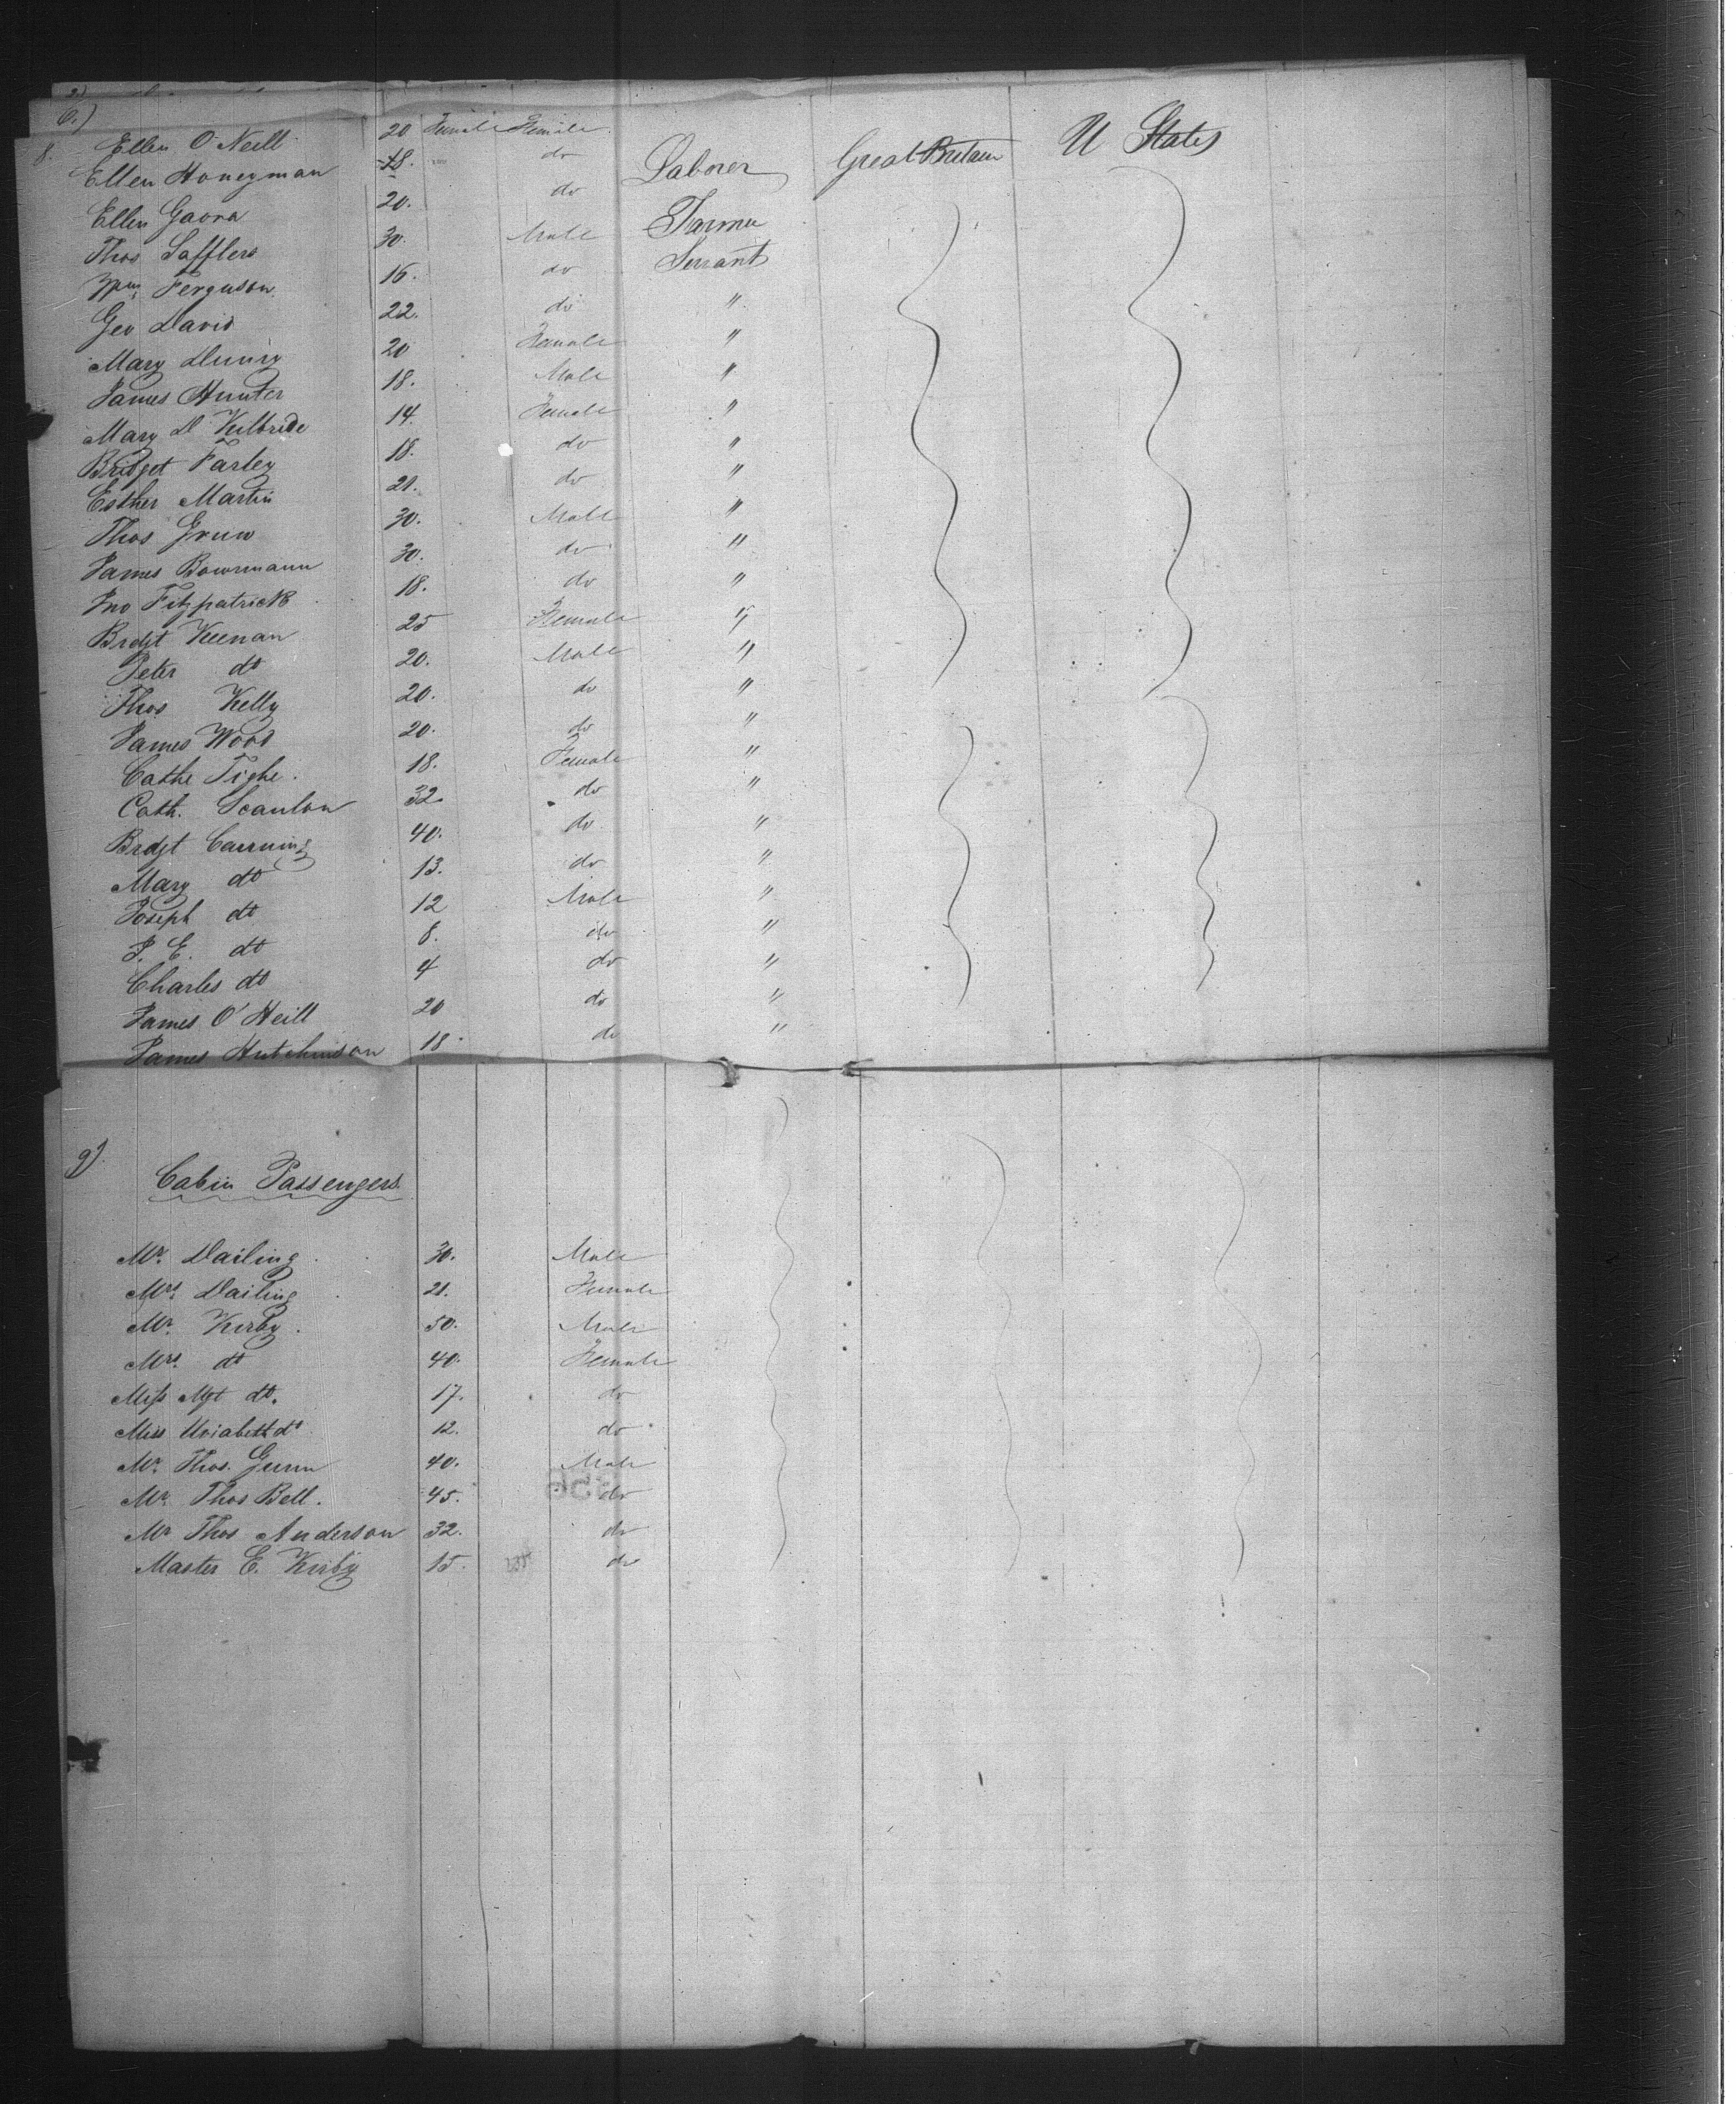 2)
6.)
8. Ellen O'Neill 20 Female Female
Ellen Honeyman 18. do Laborer Great Britain U States
Ellen Gaora 20. do
Thos Lafflers 30. Male Farmer
Wm Ferguson 16. do Servant
Geo David 22. do "
Mary Dunry 20 Female "
James Hunter 18. Male "
Mary D Kilbride 14. Female "
Bridget Farley 18. do "
Esther Martin 21. do "
Thos Grun 30. Male "
James Bowrmann 30. do "
Jno Fitzpatrick 18. do "
Brdgt Keenan 25 Female "
Peter do 20. Male "
Thos Kelly 20. do "
James Wood 20. do "
Cathe Tighe. 18. Female "
Cath. Scanlon 32. do "
Brdgt Canning 40. do "
Mary do 13. do "
Joseph do 12 Male "
J. E. do 8. do "
Charles do 4 do "
James O'Neill 20 do "
James Hutchinson 18. do "
9).
Cabin Passengers.
Mr. Dailing 30. Male
Mrs. Dailing 21. Female
Mr. Kirby. 50. Male
Mrs. do 40. Female
Miss Mgt do. 17. do
Miss do 12. do
Mr. Thos. Gunn 40. Male
Mr. Thos Bell. 45. do
Mr Thos Anderson 32. do
Master E. Kirby 15. do